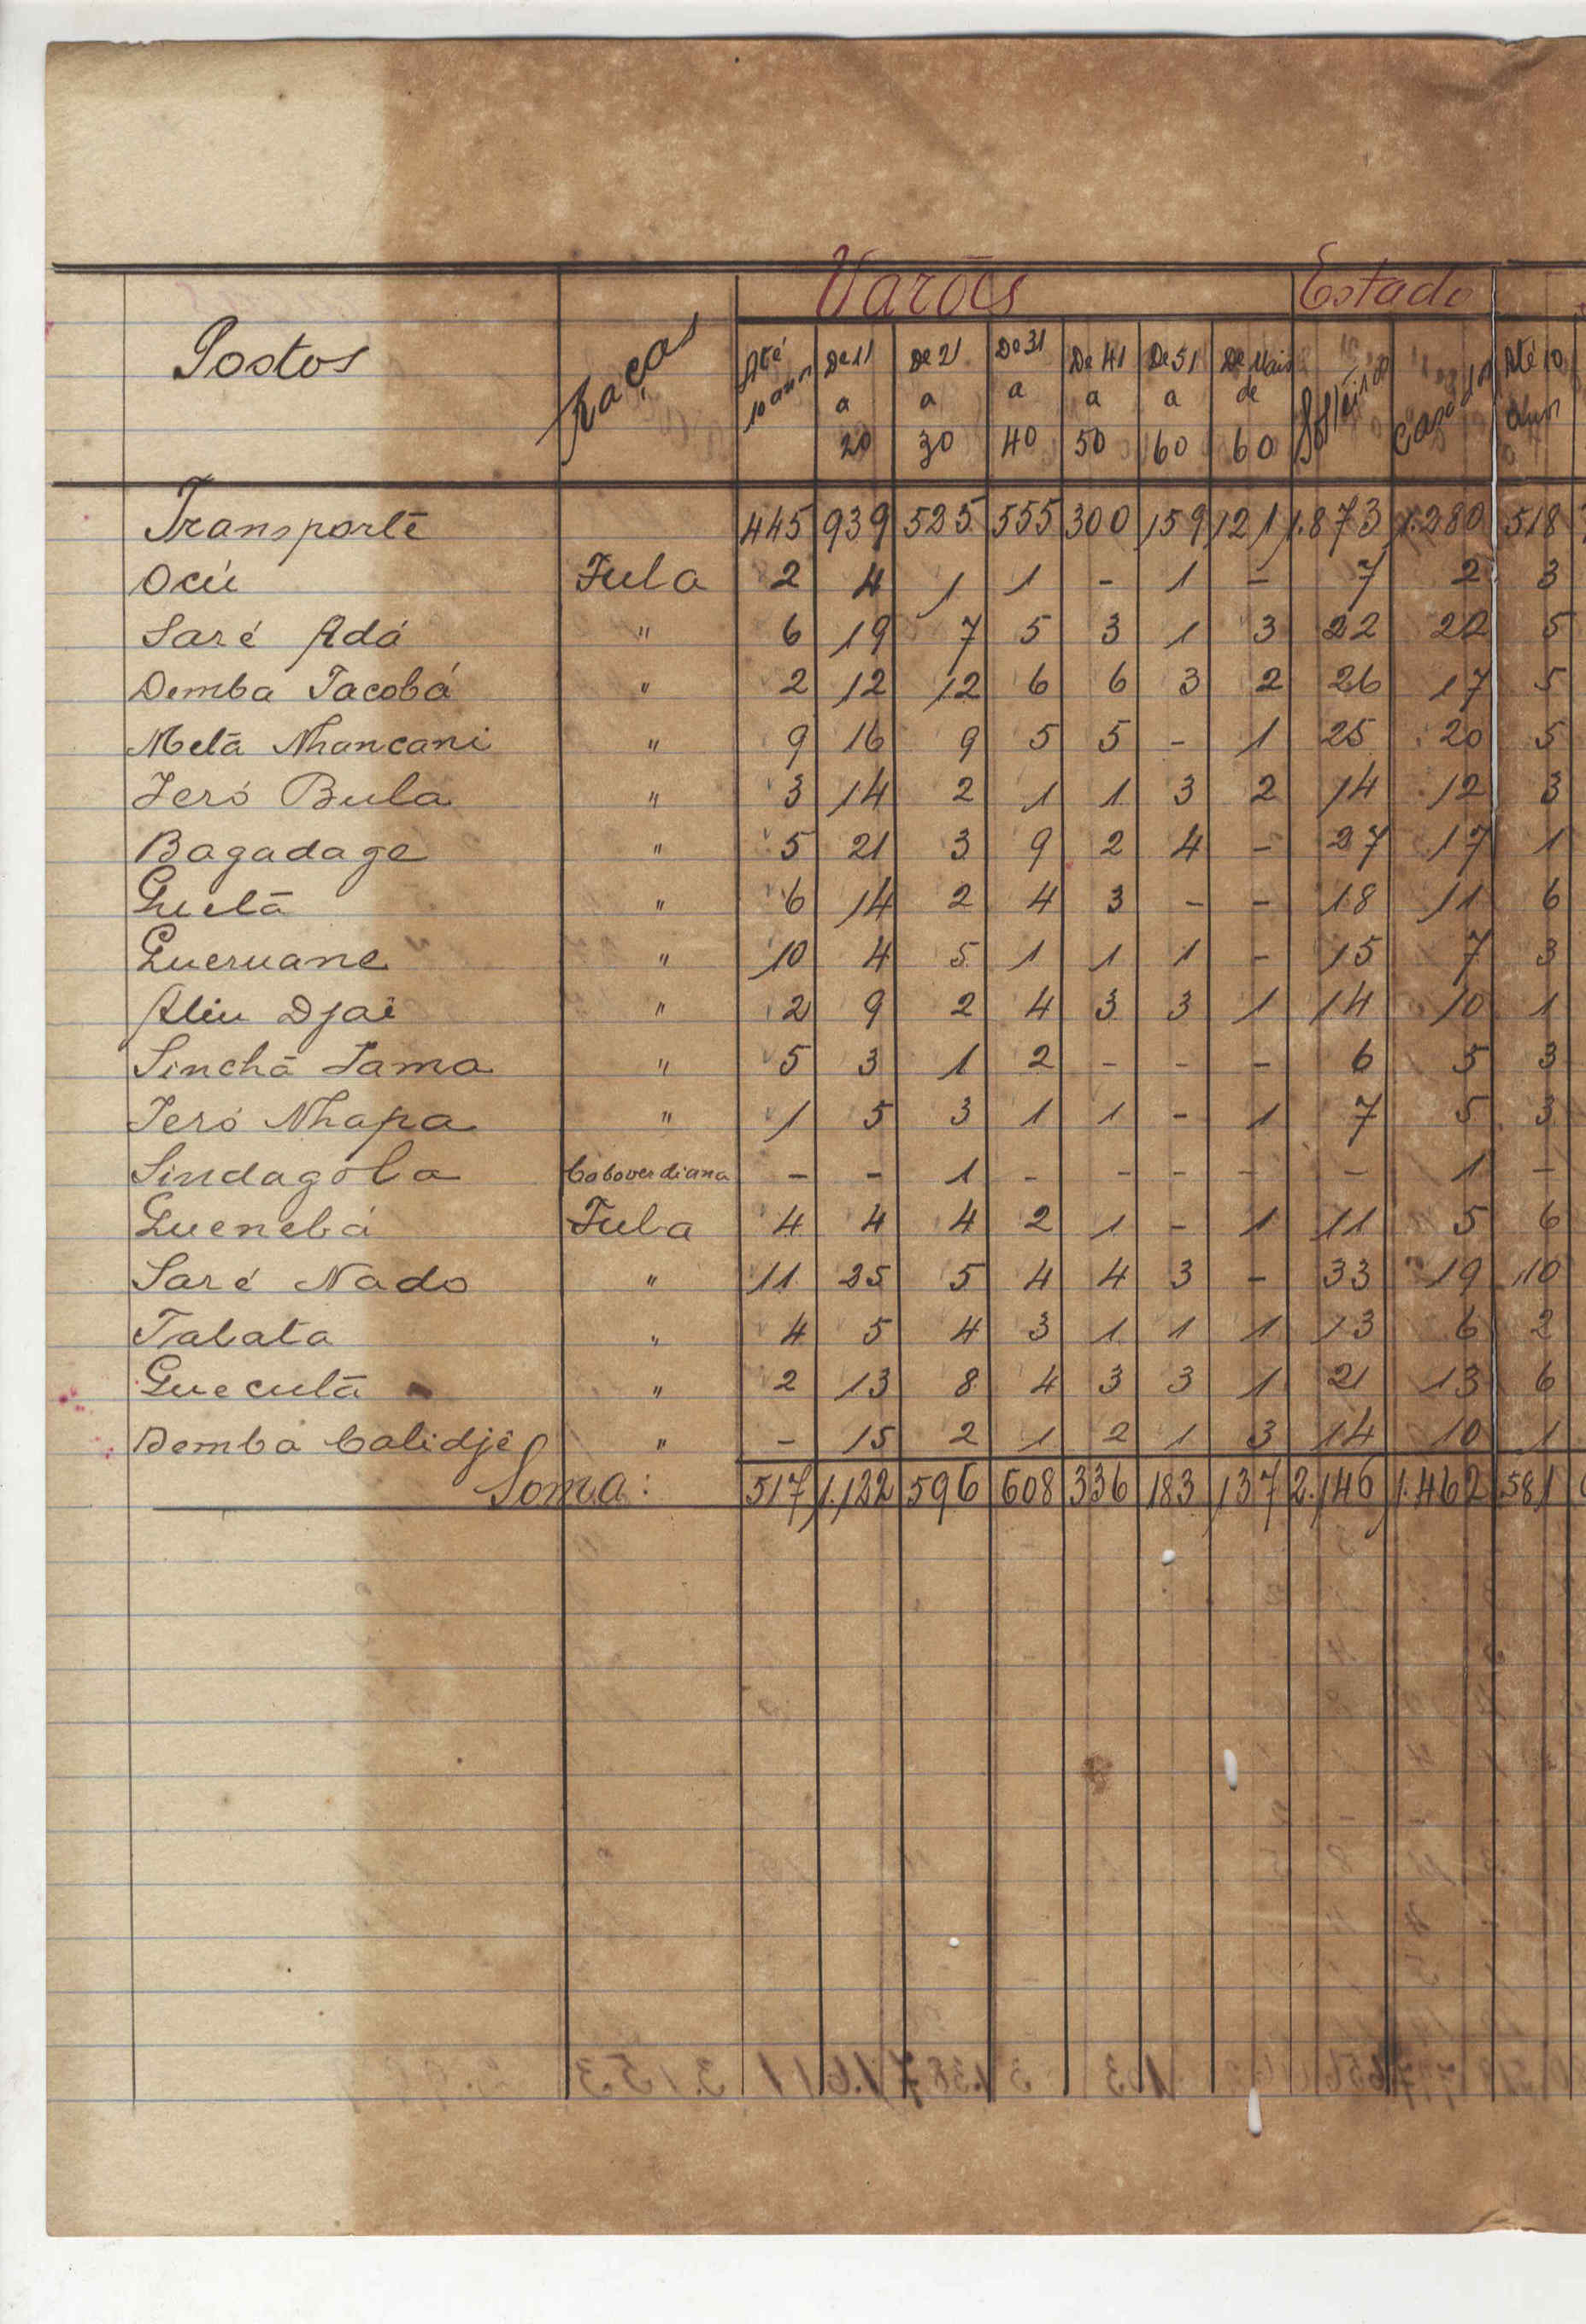 Varões Estado
Postos Raças Até 10 anos De 11 a 20 De 21 a 30 De 31 a 40 De 41 a 50 De 51 a 60 De Mais de 60 Solteiros Casados Até 10 anos
Transporte 445 939 525 555 300 159 121 1.873 1.280 518
Ocú Fula 2 4 1 1 - 1 - 7 2 3
Saré Adá " 6 19 7 5 3 1 3 22 22 5
Demba Jacobá " 2 12 12 6 6 3 2 26 17 5
Metã Nhancani " 9 16 9 5 5 - 1 25 20 5
Jeró Bula " 3 14 2 1 1 3 2 14 12 3
Bagadage " 5 21 3 9 2 4 - 27 17 1
Guetã " 6 14 2 4 3 - - 18 11 6
Gueruane " 10 4 5 1 1 1 - 15 7 3
Aliu Djai " 2 9 2 4 3 3 1 14 10 1
Sinchã Sama " 5 3 1 2 - - - 6 5 3
Jeró Nhapa " 1 5 3 1 1 - 1 7 5 3
Sindagola Caboverdiana - - 1 - - - - - 1 -
Guenebá Fula 4 4 4 2 1 - 1 11 5 6
Saré Nado " 11 25 5 4 4 3 - 33 19 10
Tabata " 4 5 4 3 1 1 1 13 6 2
Guecutã " 2 13 8 4 3 3 1 21 13 6
Demba Calidjê " - 15 2 1 2 1 3 14 10 1
Soma: 517 1.122 596 608 336 183 137 2.146 1.462 581